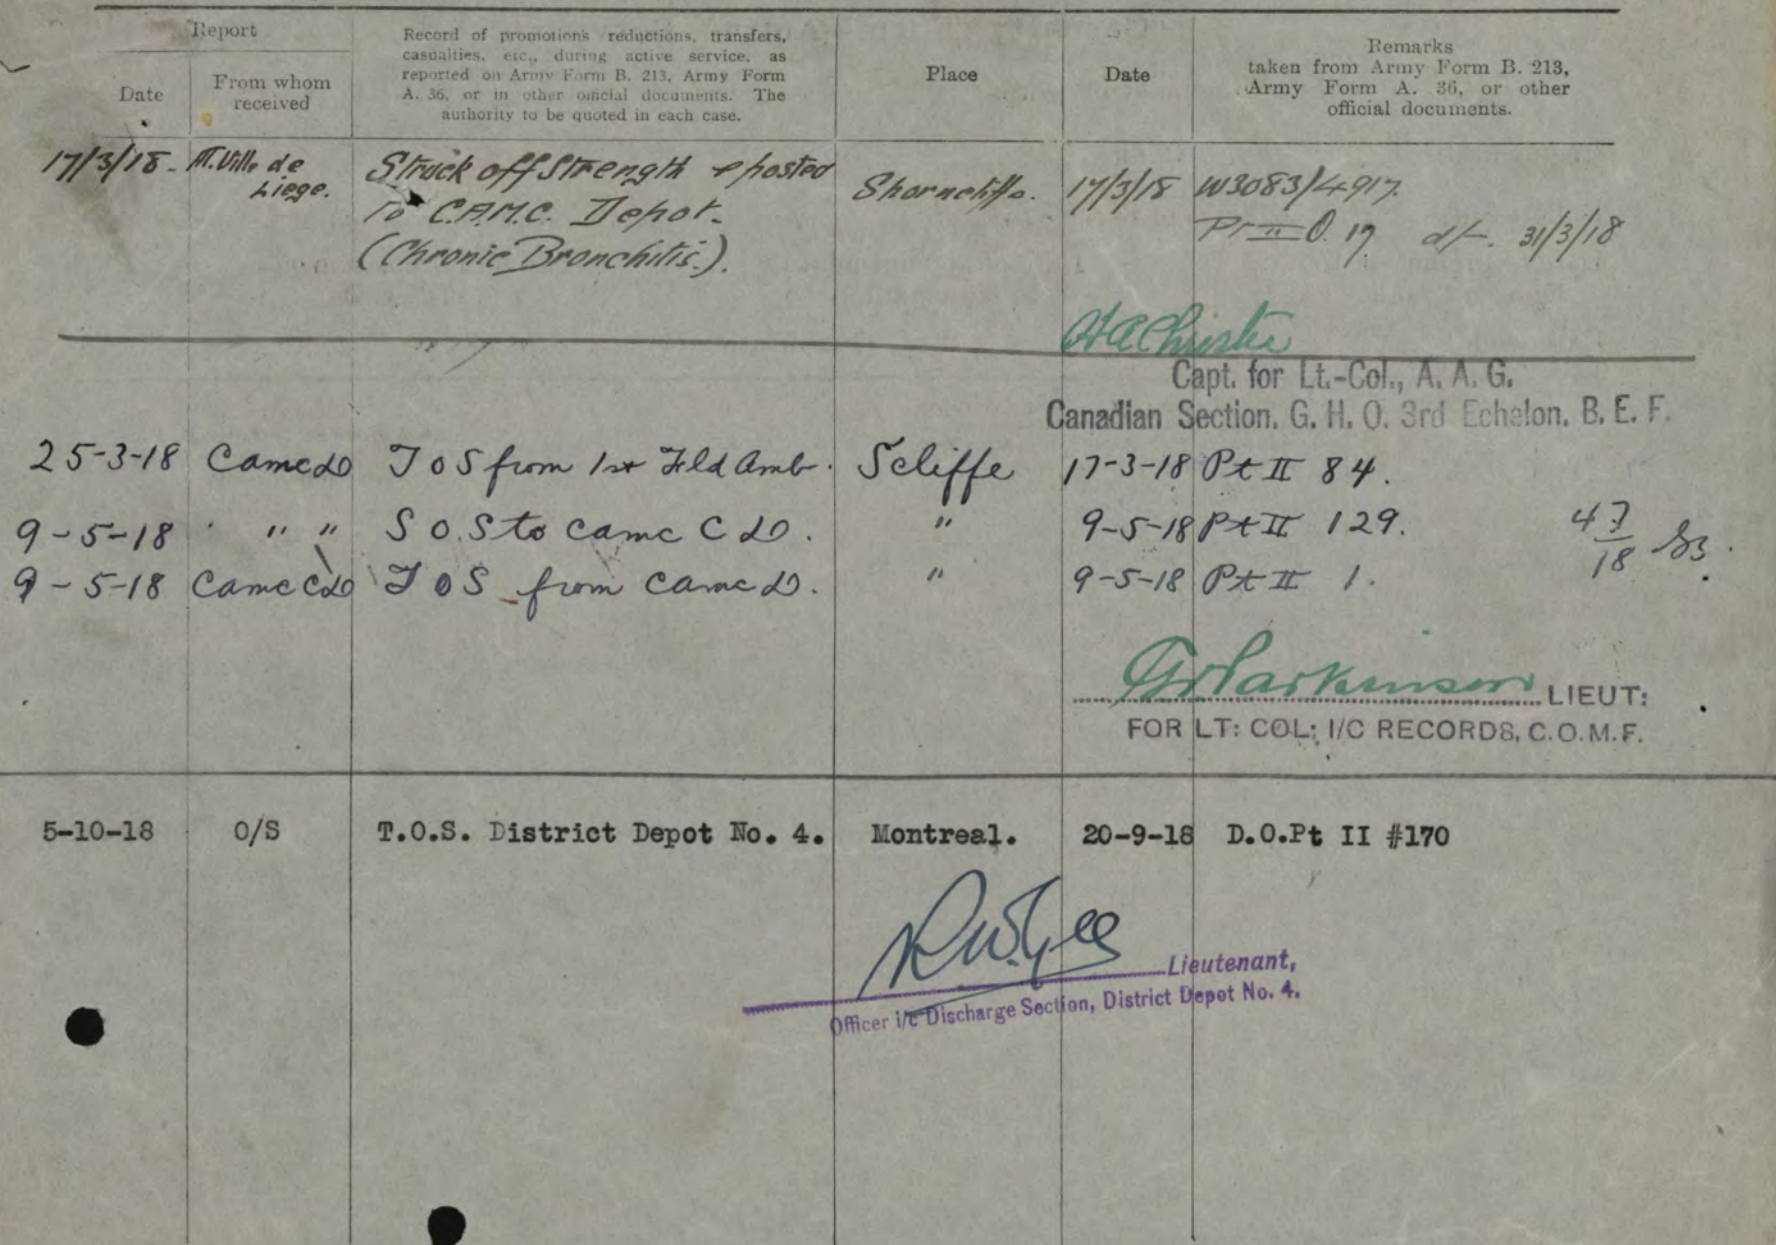 Report
Date
From whom
received
Record of promotions reductions, transfers,
casualties, etc., during active service, as
reported on Army Form B. 213, Army Form
A. 36, or in other official documents. The
authority to be quoted in each case.
Place
Date
Remarks
taken from Army Form B. 213,
Army Form A. 36, or other
official documents.
17/3/18. Ville de Struck off Strength & posted Shorncliffe. 17/3/18 W3083/4917.
Liege. To C.A.M.C. Depot. Pt II O. 17. d/-. 31/3/18
(Chronic Bronchitis.).
Capt. for Lt.-Col., A. A. G.
Canadian Section. G. H. Q. 3rd Echelon. B. E. F.
25-3-18 Camc D T O S from 1st Fld Amb. Scliffe 17-3-18 Pt II 84.
9-5-18 " " S O.S to Camc C D. " 9-5-18 Pt II 129. 47/18
9-5-18 Camc CD T O S from Camc D. " 9-5-18 Pt II 1.
Parkinson LIEUT:
FOR LT: COL: I/C RECORDS, C.O.M.F.
5-10-18 O/S T.O.S. District Depot No. 4. Montreal. 20-9-18 D.O.Pt II #170
Lieutenant,
Officer i/c Discharge Section, District Depot No. 4.